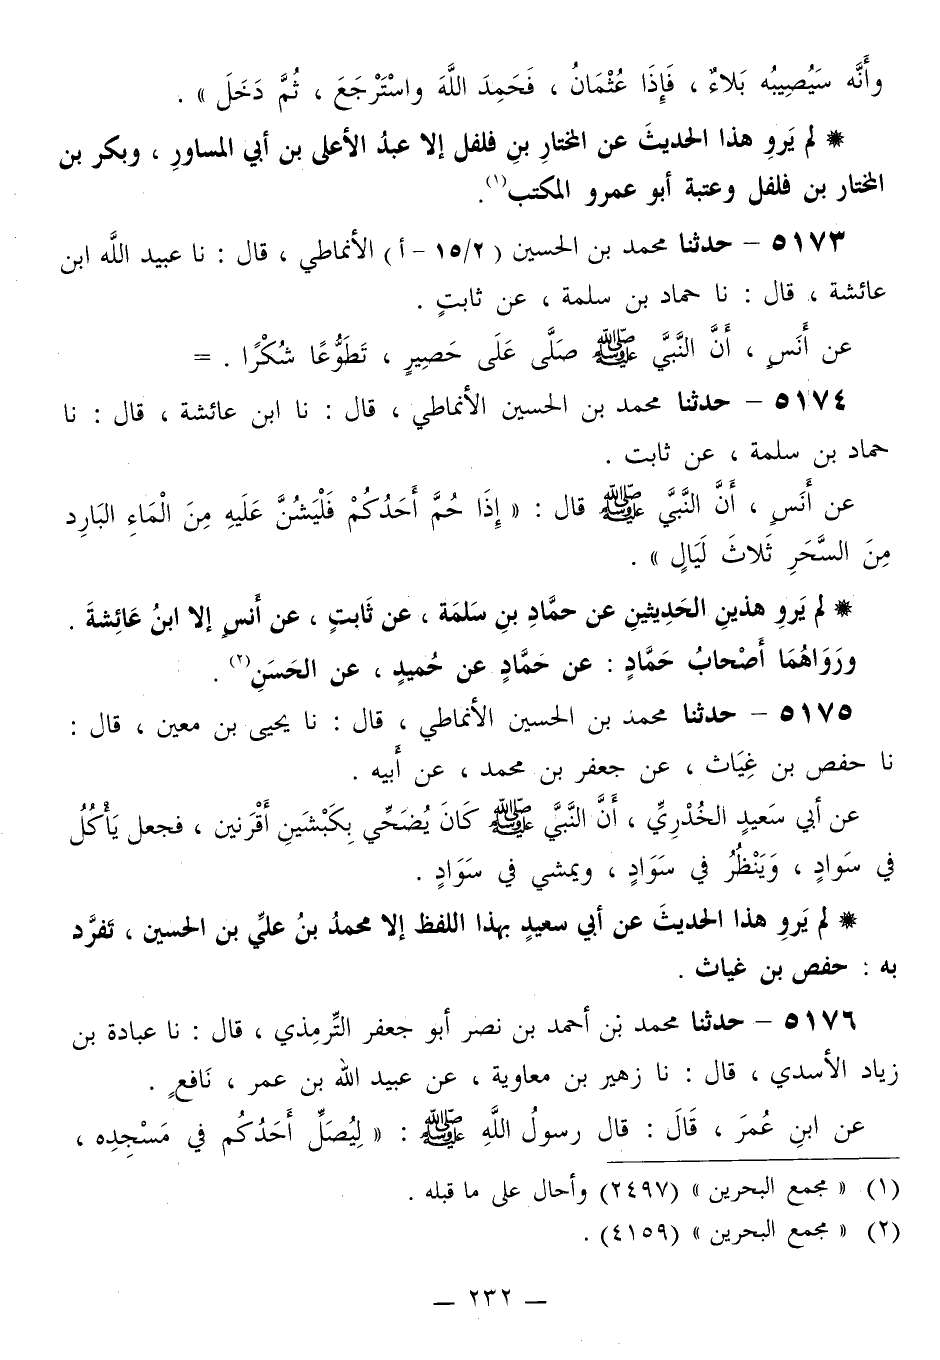 وأَنَّه سَيُصِيبُه بَلاءٌ ، فَإِذَا عُثْمَانُ ، فَحَمِدَ اللَّهَ واسْتَرْجَعَ ، ثُمَّ دَخَلَ » .
* لم يَروِ هذا الحديثَ عن المختارِ بنِ فلفل إلا عبدُ الأعلى بن أبي المساورِ ، وبكر بن
المختار بن فلفل وعتبة أبو عمرو المكتب(١).
٥١٧٣ – حدثنا محمد بن الحسين (١٥/٢ – أ) الأنماطي ، قال : نا عبيد اللَّه ابن
عائشة ، قال : نا حماد بن سلمة ، عن ثابتٍ .
عن أَنَسٍ ، أَنَّ النَّبِيَّ ﷺ صَلَّى عَلَى حَصِيرٍ ، تَطَوُّعًا شُكْرًا . =
٥١٧٤ – حدثنا محمد بن الحسين الأنماطي ، قال : نا ابن عائشة ، قال : نا
حماد بن سلمة ، عن ثابت .
عن أَنَسٍ ، أَنَّ النَّبِيَّ ﷺ قال : « إِذَا حُمَّ أَحَدُكُمْ فَلْيَشُنَّ عَلَيهِ مِنَ الْمَاءِ البَارِد
مِنَ السَّحَرِ ثَلاثَ لَيَالٍ » .
* لم يَروِ هذينِ الحَدِيثينِ عن حمَّادِ بنِ سَلمَة ، عن ثَابتٍ ، عن أَنسٍ إلا ابنُ عَائِشةَ .
ورَوَاهُمَا أَصْحابُ حَمَّادٍ : عن حَمَّادٍ عن حُميدٍ ، عن الحَسَنِ(٢) .
٥١٧٥ – حدثنا محمد بن الحسين الأنماطي ، قال : نا يحيى بن معين ، قال :
نا حفص بن غِيَاث ، عن جعفر بن محمد ، عن أَبيه .
عن أبي سَعيدٍ الخُدْرِيِّ ، أَنَّ النَّبيَّ ﷺ كَانَ يُضَحِّي بِكَبْشَينِ أَقْرَنين ، فجعل يَأْكُلُ
في سَوادٍ ، وَيَنْظُرُ في سَوَادٍ ، ويمشي في سَوَادٍ .
* لم يَروِ هذا الحديثَ عن أبي سعيدٍ بهذا اللفظ إلا محمدُ بنُ عليِّ بن الحسين ، تَفرَّد
به : حفص بن غياث .
٥١٧٦ – حدثنا محمد بن أحمد بن نصر أبو جعفر التِّرمِذي ، قال : نا عبادة بن
زياد الأسدي ، قال : نا زهير بن معاوية ، عن عبيد الله بن عمر ، نَافعٍ .
عن ابنِ عُمرَ ، قَالَ : قال رسولُ اللَّهِ ﷺ : « لِيُصَلِّ أَحَدُكُم في مَسْجِدِه ،
(١) « مجمع البحرين » (٢٤٩٧) وأحال على ما قبله .
(٢) « مجمع البحرين » (٤١٥٩) .
– ٢٣٢ –